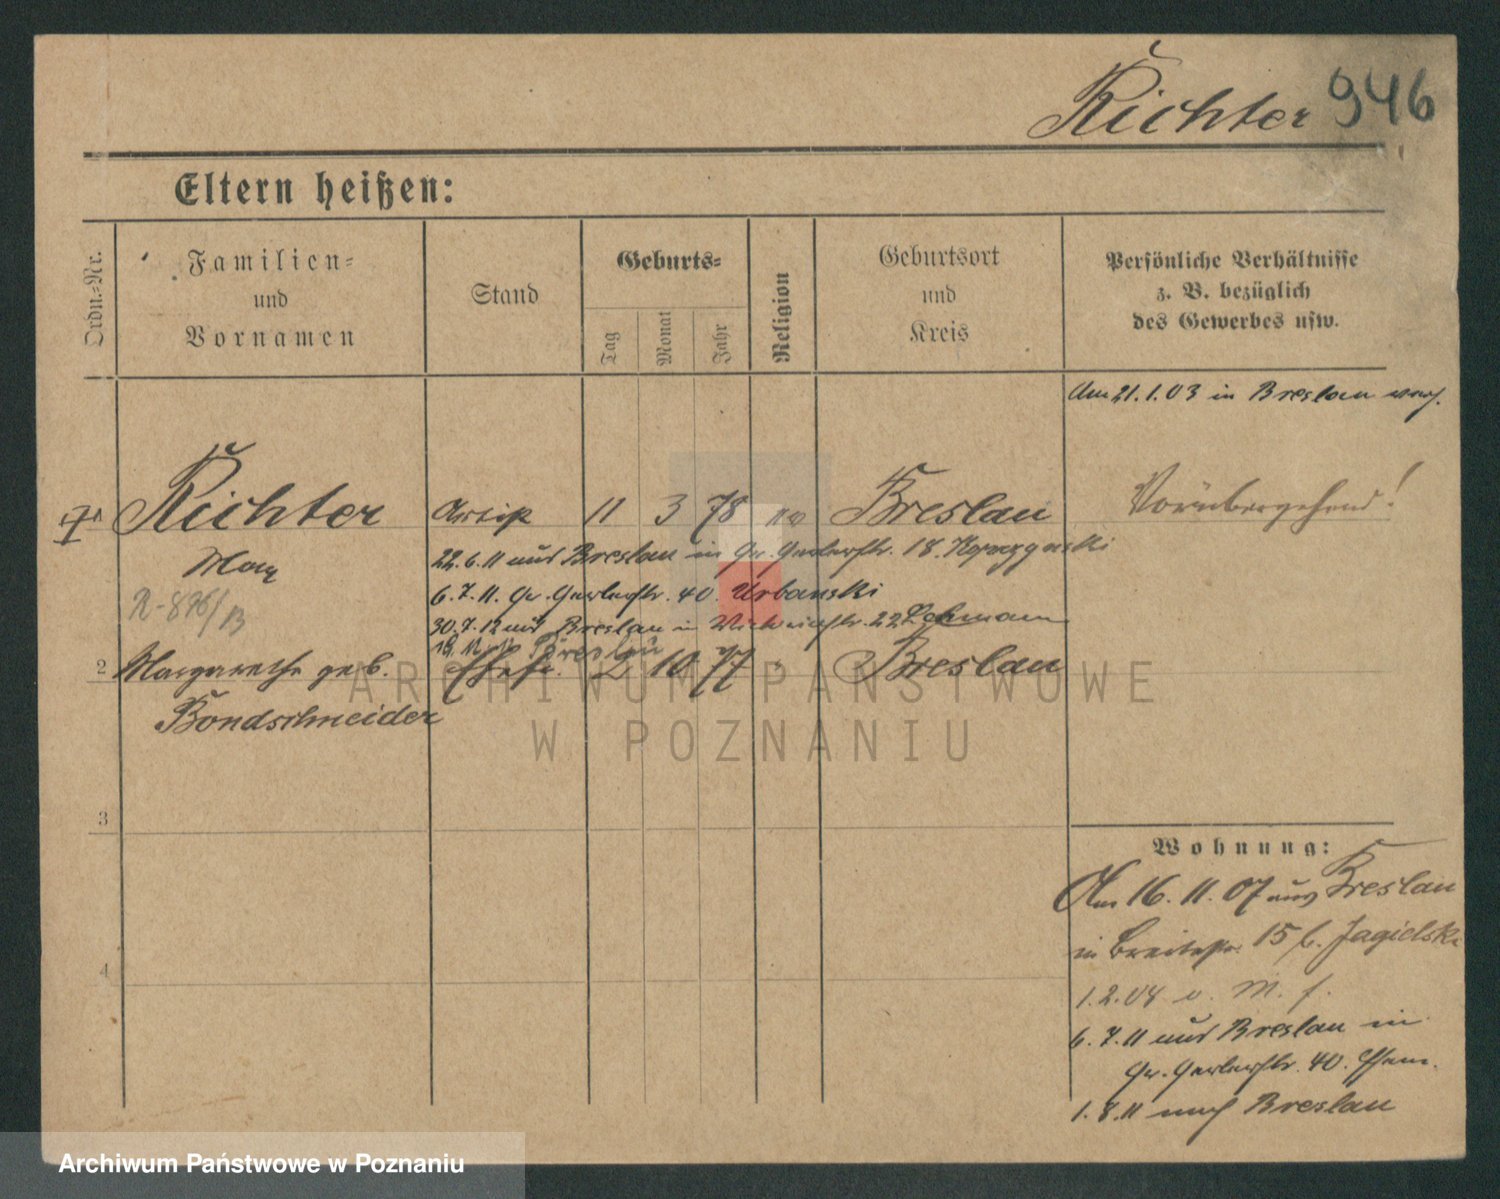 Richter 946
Eltern heißen:
Ordn.-Nr.
Familien-
und
Vornamen
Stand
Geburts-
Tag
Monat
Jahr
Religion
Geburtsort
und
Kreis
Persönliche Verhältnisse
z. B. bezüglich
des Gewerbes usw.
Am 21.1.03 in Breslau
Richter 11 3 78 Breslau
Vorübergehend!
Max
22.6.11 aus Breslau in Gr. Gerberstr. 18.
R-876/B
6.7.11. Gr. Gerberstr. 40. Urbanski
30.7.12 aus Breslau in 22 Lehmann
Breslau
2 Margarethe geb. Ehefr. 2 10 77 Breslau
Bondschneider
3
4
Wohnung:
Am 16.11.07 aus Breslau
in Breitestr. 15 b. Jagielski
1.2.08 v. M. f.
6.7.11 aus Breslau in
Gr. Gerberstr. 40.
1.8.11 nach Breslau
ARCHIWUM PAŃSTWOWE
W POZNANIU
Archiwum Państwowe w Poznaniu